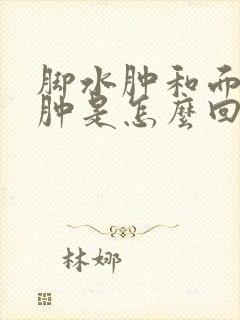 脚水肿和而
肿是怎麽回
林娜